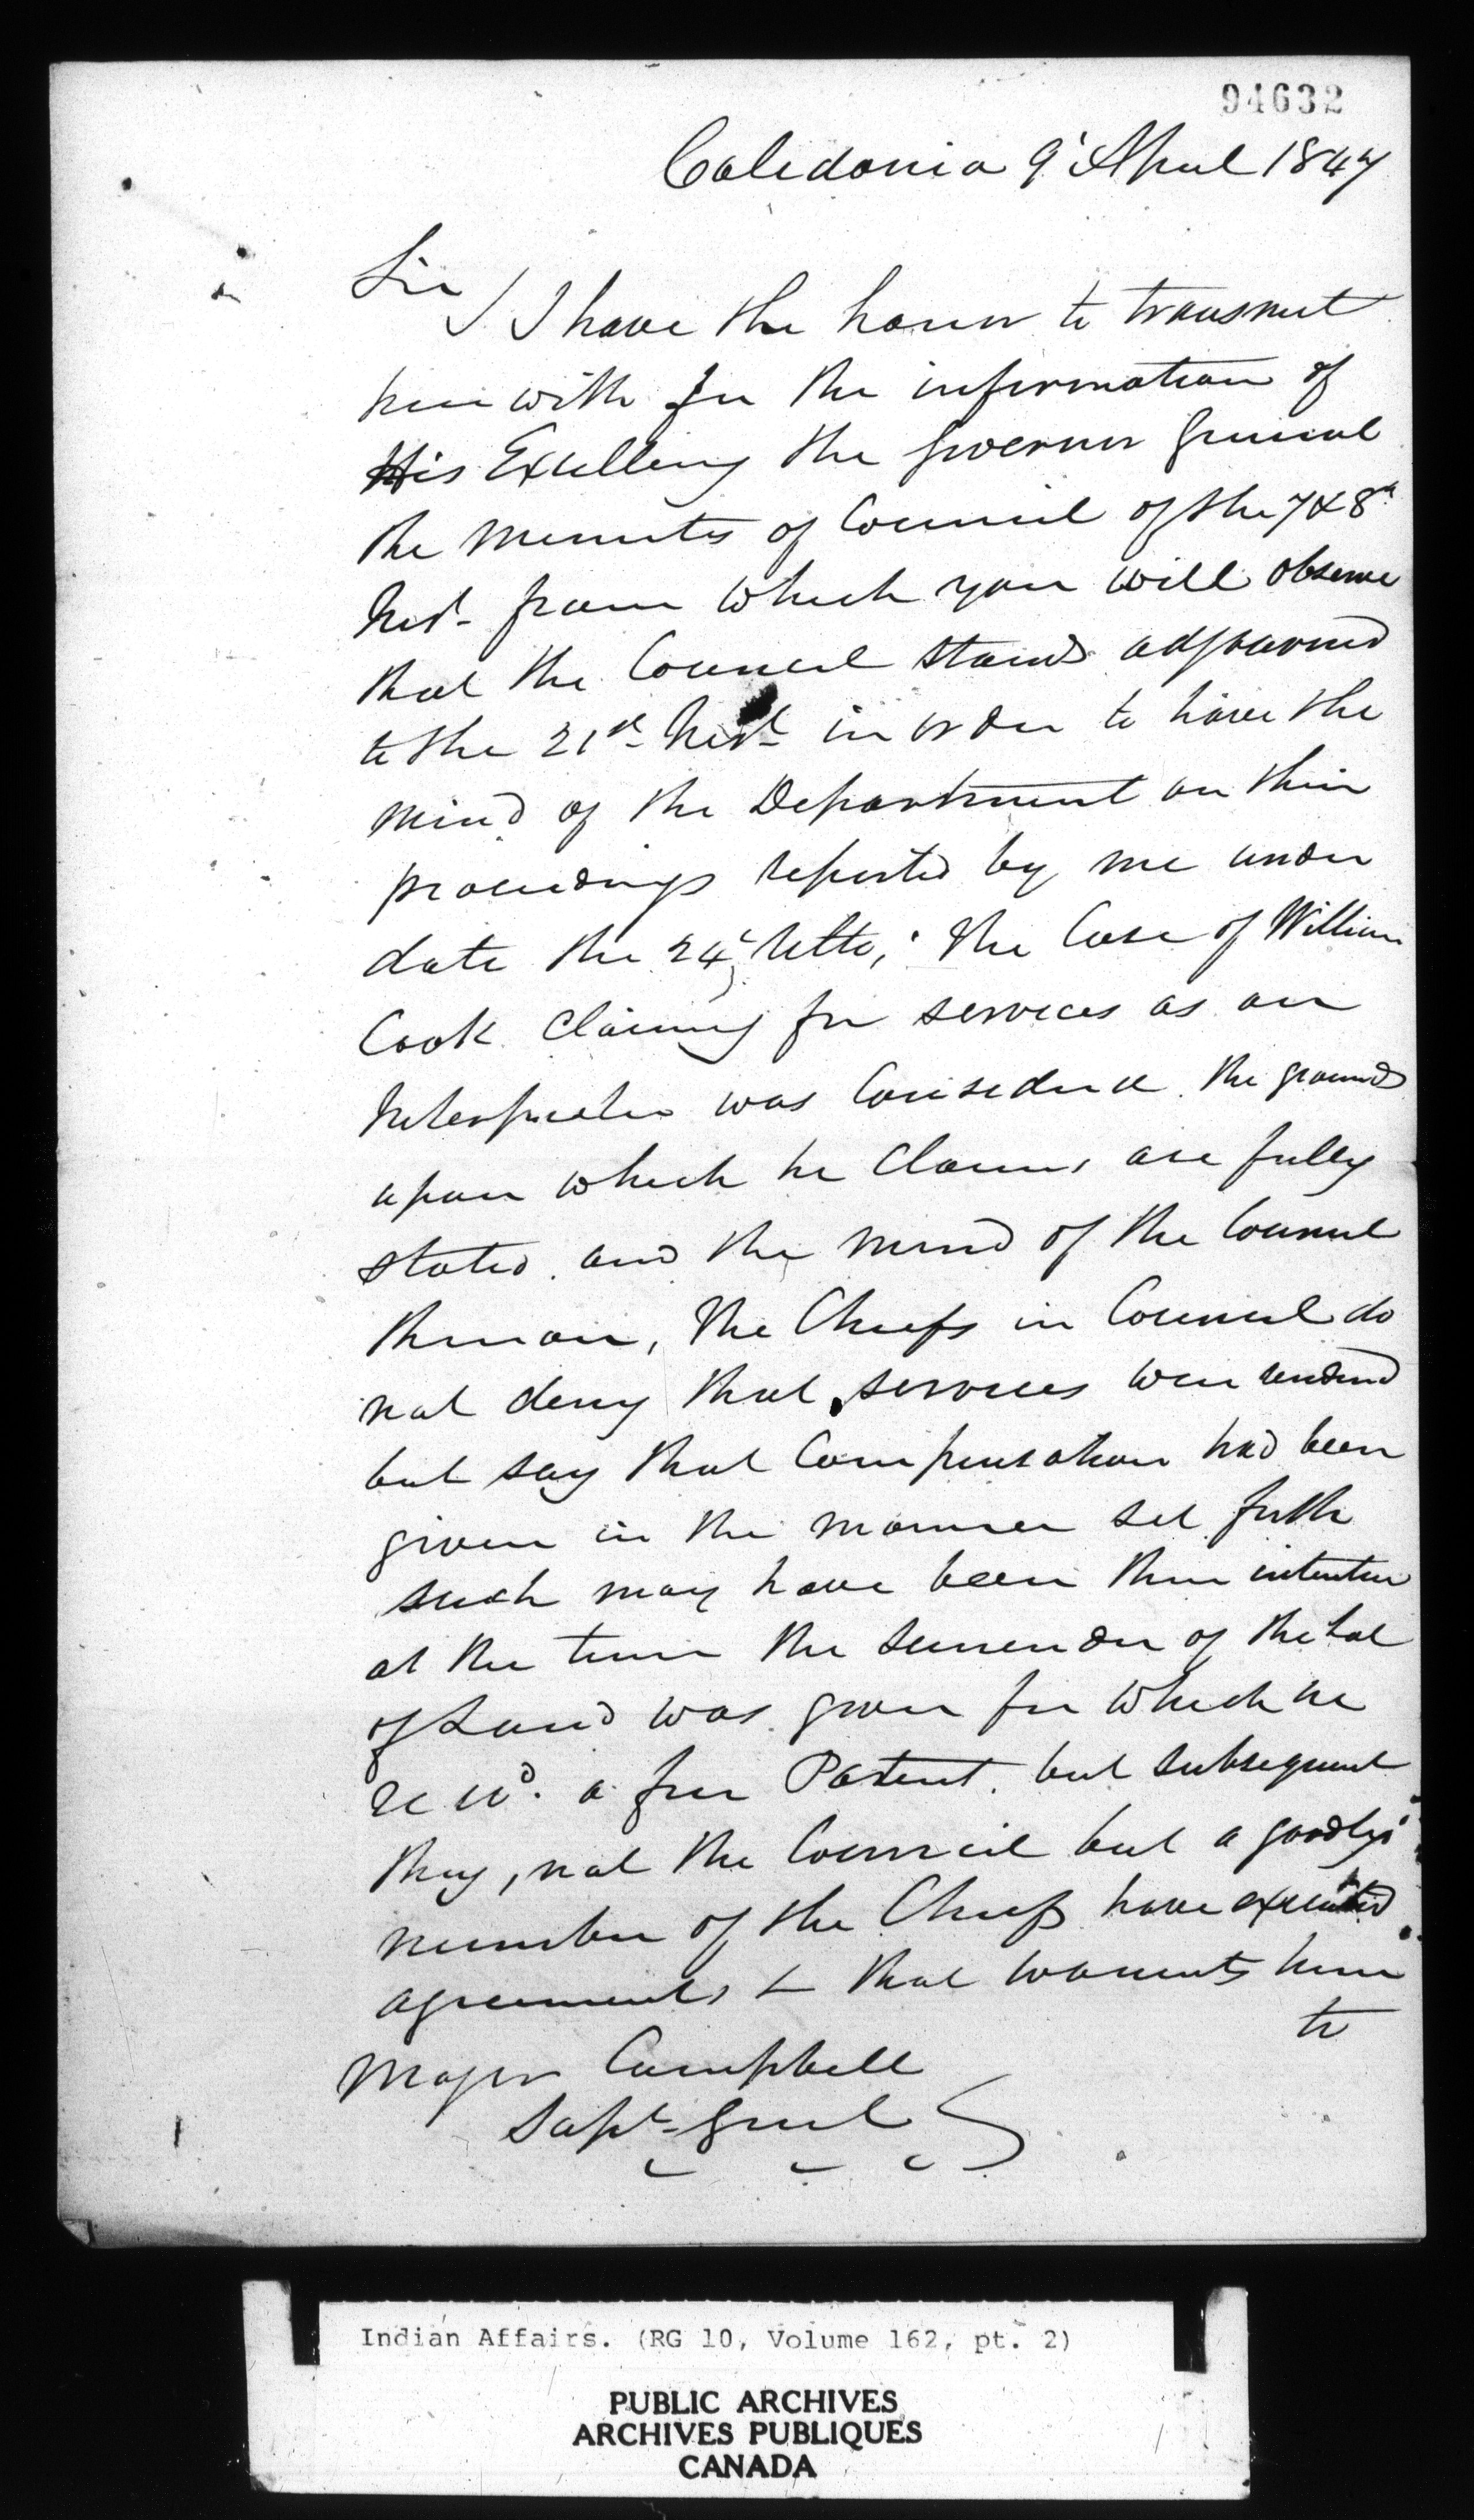 94632
Caledonia 9' April 1847
Sir
I have the honor to transmit
herewith for the information of
His Excellency the Governor General
the Minutes of Council of the 7 & 8th
Inst- from which you will observe
that the Council stands adjourned
to the 21st Inst- in order to have the
mind of the Department on their
proceedings reported by me under
date the 24' Ulto; The Case of William
Cook Claiming for services as an
Interpreter was Considered the grounds
upon which he Claims are fully
stated. and the mind of the Council
thereon, The Chiefs in Council do
not deny that services were rendered
but say that Compensation had been
given in the manner set forth
such may have been their intention
at the time the surrender of the Lot
of Land was given for which he
recd. a free Patent. but subsequent
they, not the Council but a goodly
number of the Chiefs have executed
agreements & that warrants him
to
Major Campbell
Supt- Genl
Indian Affairs. (RG 10, Volume 162, pt. 2)
PUBLIC ARCHIVES
ARCHIVES PUBLIQUES
CANADA